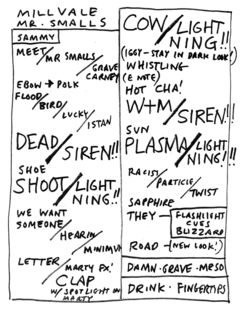 MILLVALE
MR. SMALLS
SAMMY
MEET/
MR SMALLS
/GRAVE
CARNEY
EBOW → POLK
FLOOD/
BIRD/
LUCKY/
ISTAN
DEAD/
SIREN!!
SHOE
SHOOT/LIGHT
NING!!
WE WANT
SOMEONE/
HEARIN/
MINIMUM
LETTER/
MARTY PX!
CLAP
W/ SPOTLIGHT IN
MARTY
COW/LIGHT
NING!!
(IGGY-STAY IN DARK LOOK!)
WHISTLING
(E NOTE)
HOT CHA!
W+M/
SIREN!!
SUN
PLASMA/LIGHT
NING!
RACIST/
PARTICLE/
TWIST
SAPPHIRE
THEY — FLASHLIGHT
CUES
BLIZZARD
ROAD — (NEW LOOK!)
DAMN·GRAVE·MPSO
DRINK·FINGERTIPS